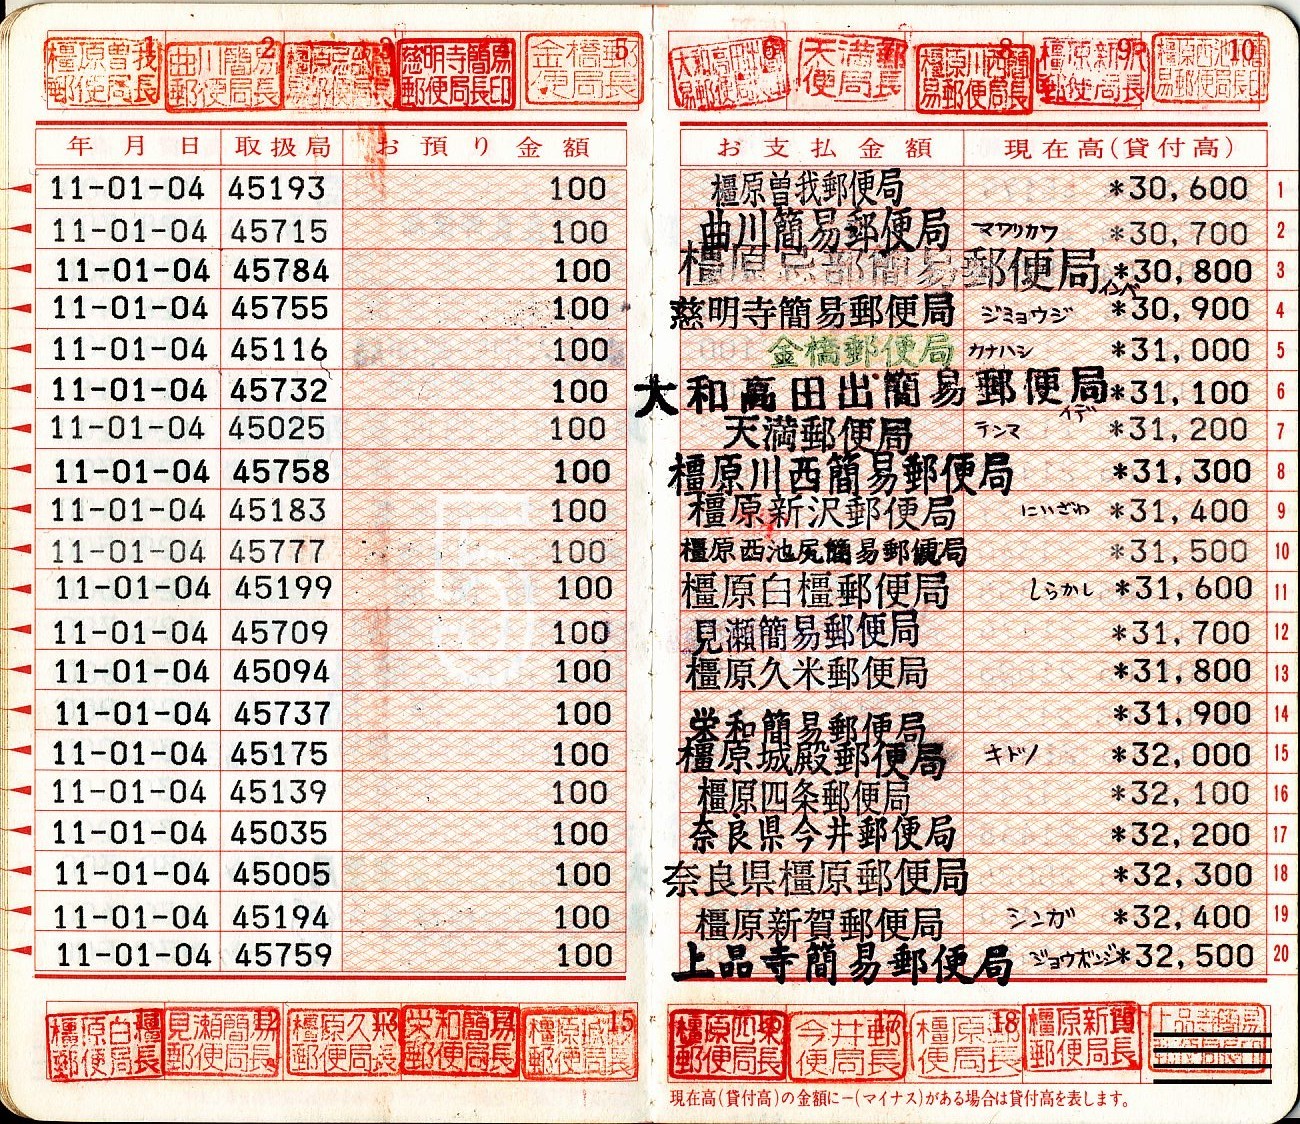 橿原曽我郵便局長 1 曲川簡易郵便局長 2 3 慈明寺簡易郵便局長印 金橋郵便局長 5 大和高田出簡易郵便局長 6 天満郵便局長 7 橿原川西簡易郵便局長 8 橿原新沢郵便局長 9 橿原西池尻簡易郵便局長印 10
年月日 取扱局 お預り金額 お支払金額 現在高(貸付高)
11-01-04 45193 100 橿原曽我郵便局 *30,600 1
11-01-04 45715 100 曲川簡易郵便局 マワリカワ *30,700 2
11-01-04 45784 100 橿原忌部簡易郵便局 インベ *30,800 3
11-01-04 45755 100 慈明寺簡易郵便局 ジミョウジ *30,900 4
11-01-04 45116 100 金橋郵便局 カナハシ *31,000 5
11-01-04 45732 100 大和高田出簡易郵便局 イデ *31,100 6
11-01-04 45025 100 天満郵便局 テンマ *31,200 7
11-01-04 45758 100 橿原川西簡易郵便局 *31,300 8
11-01-04 45183 100 橿原新沢郵便局 にいざわ *31,400 9
11-01-04 45777 100 橿原西池尻簡易郵便局 *31,500 10
11-01-04 45199 100 橿原白橿郵便局 しらかし *31,600 11
11-01-04 45709 100 見瀬簡易郵便局 *31,700 12
11-01-04 45094 100 橿原久米郵便局 *31,800 13
11-01-04 45737 100 栄和簡易郵便局 *31,900 14
11-01-04 45175 100 橿原城殿郵便局 キドノ *32,000 15
11-01-04 45139 100 橿原四条郵便局 *32,100 16
11-01-04 45035 100 奈良県今井郵便局 *32,200 17
11-01-04 45005 100 奈良県橿原郵便局 *32,300 18
11-01-04 45194 100 橿原新賀郵便局 シンガ *32,400 19
11-01-04 45759 100 上品寺簡易郵便局 ジョウボンジ *32,500 20
橿原白橿郵便局長 見瀬簡易郵便局長 12 橿原久米郵便局長 栄和簡易郵便局長 橿原城殿郵便局長 15 橿原四条郵便局長 今井郵便局長 17 橿原郵便局長 18 橿原新賀郵便局長 上品寺簡易郵便局長印
現在高(貸付高)の金額に－(マイナス)がある場合は貸付高を表します。